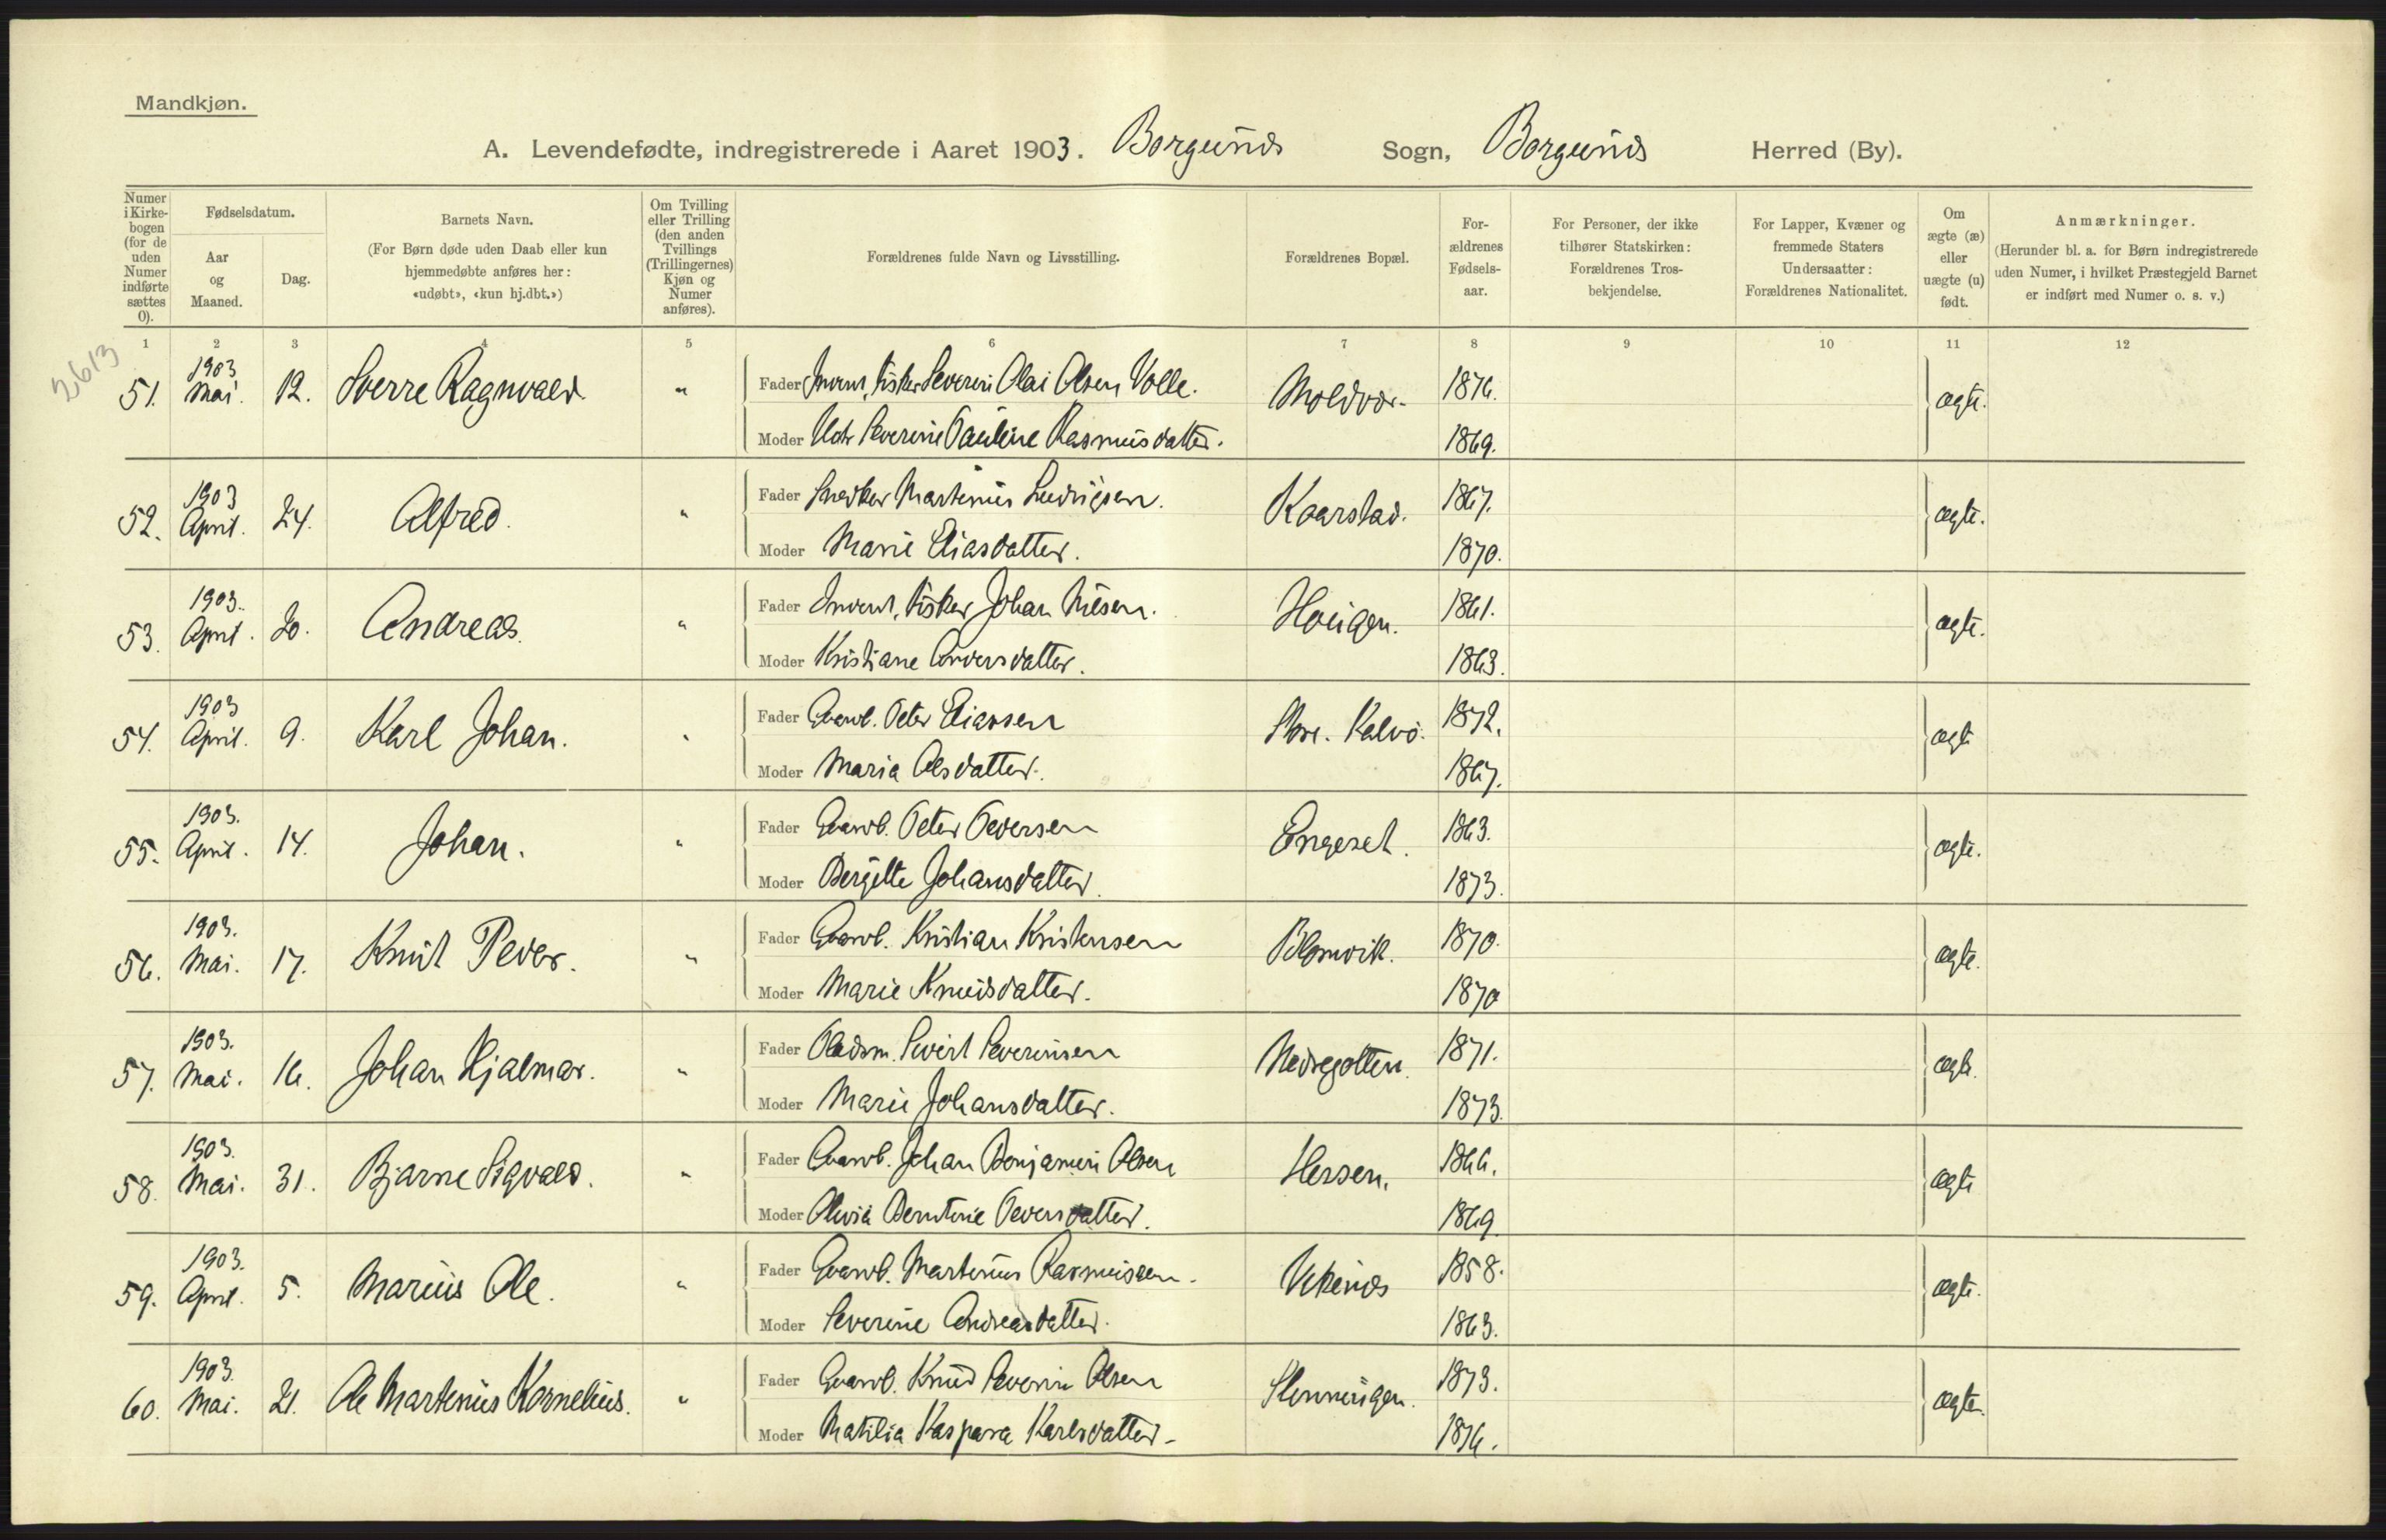 Mandkjøn.
A. Levendefødte, indregistrerede i Aaret 1903. Borgund Sogn, Borgund Herred (By).
Numer i Kirkebogen (for de uden Numer indførte sættes 0).
Fødselsdatum.
Aar og Maaned.
Dag.
Barnets Navn.
(For Børn døde uden Daab eller kun hjemmedøbte anføres her: «udøbt», «kun hj.dbt.»)
Om Tvilling eller Trilling (den anden Tvillings (Trillingernes) Kjøn og Numer anføres).
Forældrenes fulde Navn og Livsstilling.
Forældrenes Bopæl.
Forældrenes Fødselsaar.
For Personer, der ikke tilhører Statskirken: Forældrenes Trosbekjendelse.
For Lapper, Kvæner og fremmede Staters Undersaatter: Forældrenes Nationalitet.
Om ægte (æ) eller uægte (u) født.
Anmærkninger.
(Herunder bl. a. for Børn indregistrerede uden Numer, i hvilket Præstegjeld Barnet er indført med Numer o. s. v.)
1 2 3 4 5 6 7 8 9 10 11 12
2613
51. 1903 Mai. 12. Sverre Ragnvald. " Fader Fisker Severin Olai Olsen Volle. Moldvær. 1876. ægte.
Moder Severine Pauline Rasmusdatter. 1869.
52. 1903 April. 24. Alfred. " Fader Snedker Martinus Ludvigsen. Kaarstad. 1867. ægte.
Moder Marie Eliasdatter. 1870.
53. 1903. April. 20. Andreas. " Fader Fisker Johan Nilsen. Hougen. 1861. ægte.
Moder Kristiane Andersdatter. 1863.
54. 1903 April. 9. Karl Johan. " Fader Gaardb. Peter Eliassen Store Kalvø. 1872. ægte
Moder Maria Olsdatter. 1867.
55. 1903. April. 14. Johan. " Fader Gaardb. Peter Pedersen Engeset. 1863. ægte.
Moder Bergitte Johansdatter. 1873.
56. 1903. Mai. 17. Knut Peder. " Fader Gaardb. Kristian Kristensen Blomvik. 1870. ægte.
Moder Marie Knudsdatter. 1870
57. 1903. Mai. 16. Johan Hjalmar. " Fader Pladsm. Sivert Severinsen Nedregotten. 1871. ægte.
Moder Marie Johansdatter. 1873.
58. 1903. Mai. 31. Bjarne Sigvald. " Fader Gaardb. Johan Benjamin Olsen Hessen. 1866. ægte
Moder Olivia Berntine Pedersdatter. 1869
59. 1903. April. 5. Marius Ole. " Fader Gaardb. Martinus Rasmussen. 1858. ægte.
Moder Severine Andreasdatter. 1863.
60. 1903. Mai. 21. Ole Martinus Kornelius. " Fader Gaardb. Knud Severin Olsen Flemmingen. 1873. ægte.
Moder Matilia Kaspara Karlsdatter. 1876.